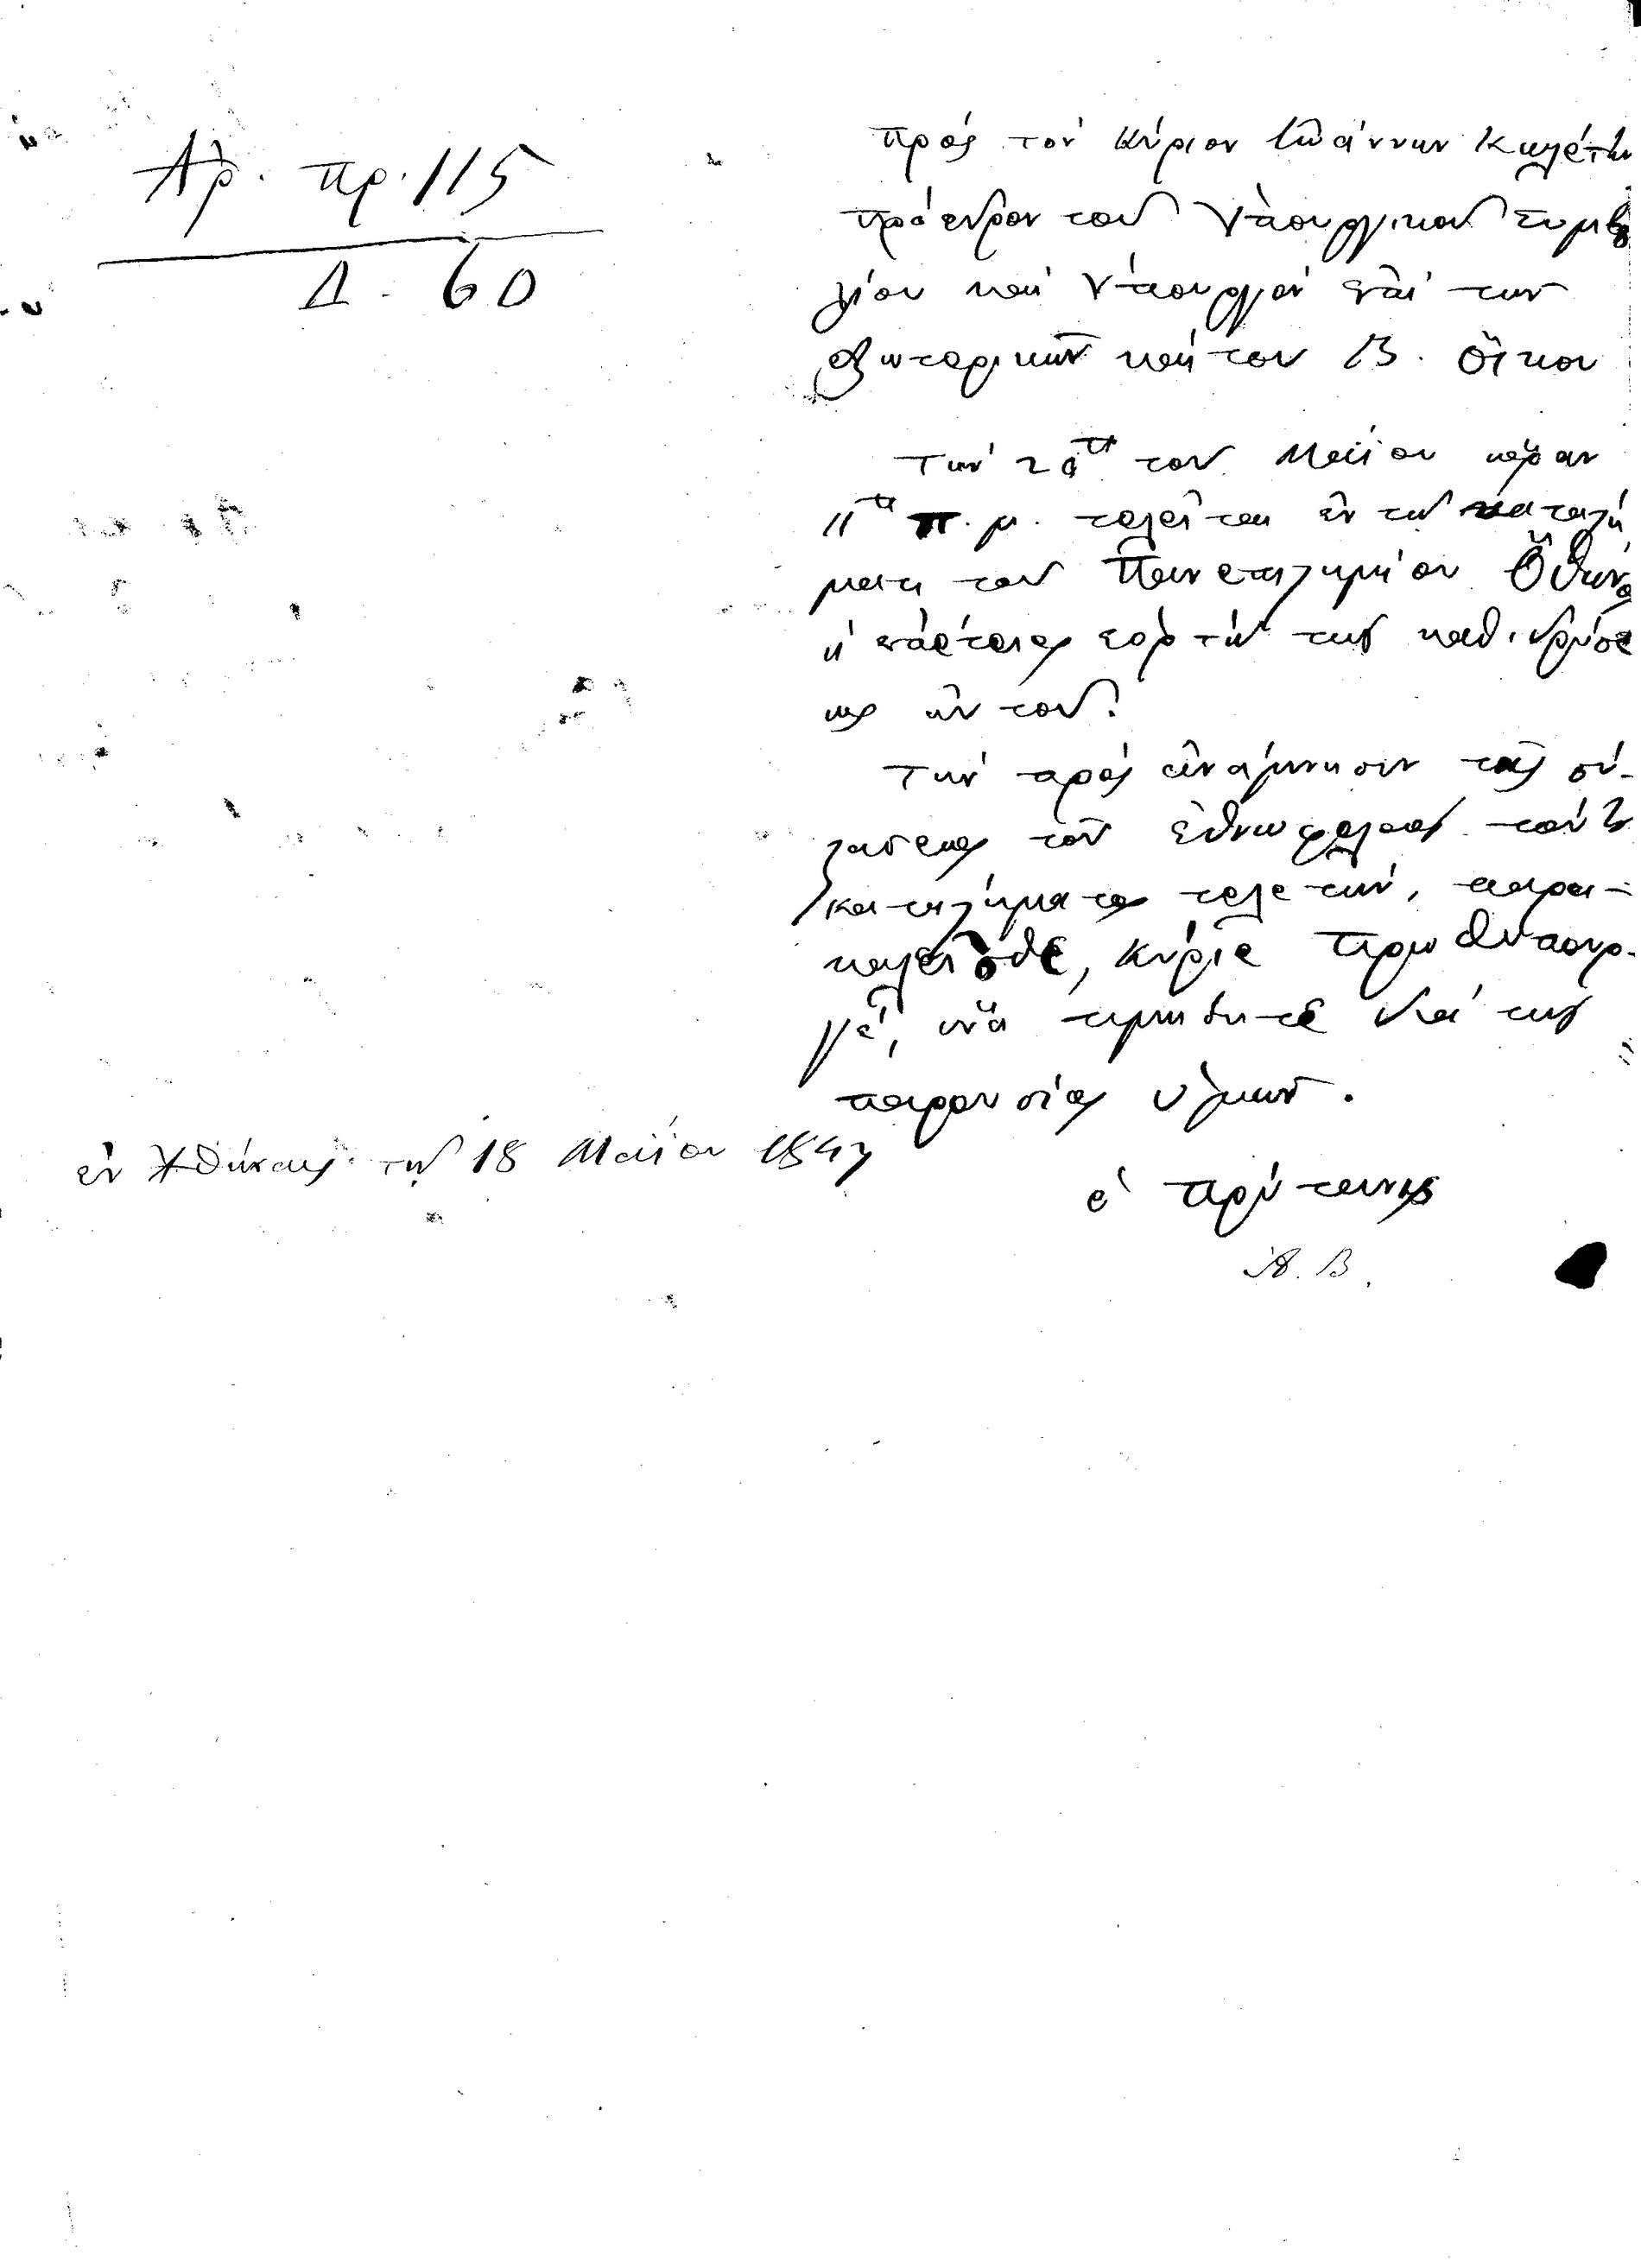 Αρ. πρ. 115
Δ. 60
Πρός τόν Κύριον Ἰωάννην Κωλέττην
Πρόεδρον τοῦ Ὑπουργικοῦ Συμβου
λίου καί Ὑπουργόν ἐπί τῶν
ἐξωτερικῶν καί τοῦ Β. Οἴκου
Τήν 20ην τοῦ Μαΐου ὥραν
11ην π. μ. τελεῖται ἐν τῷ καταστή
ματι τοῦ Πανεπιστημίου Ὄθωνος
ἡ ἐπέτειος ἑορτή τῆς καθιδρύσε
ως αὐτοῦ.
Τήν πρός ἀνάμνησιν τῆς συ-
στάσεως τοῦ ἐθνωφελοῦς τούτου
καταστήματος τελετήν, παρα-
καλεῖσθε, Κύριε Πρωθυπουρ-
γέ, νά τιμήσητε διά τῆς
παρουσίας ὑμῶν.
ἐν Ἀθήναις τῇ 18 Μαΐου 1847
ὁ Πρύτανις